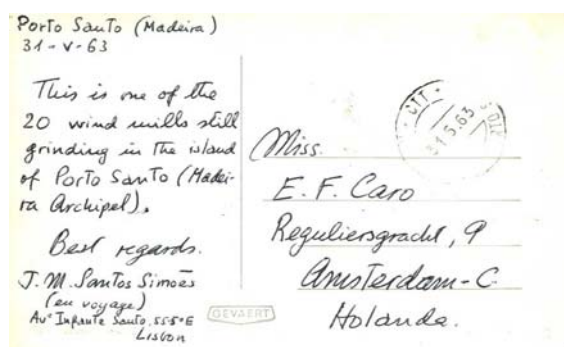 Porto Santo (Madeira)
31-V-63
This is one of the
20 wind mills still
grinding in the island
of Porto Santo (Madei-
ra Archipel).
Best regards.
J. M. Santos Simões
(en voyage)
Avª Infante Santo, 55-5º E
Lisbon
GEVAERT
CTT
31.5.63
Miss.
E. F. Caro
Reguliersgracht, 9
Amsterdam-C
Holanda.